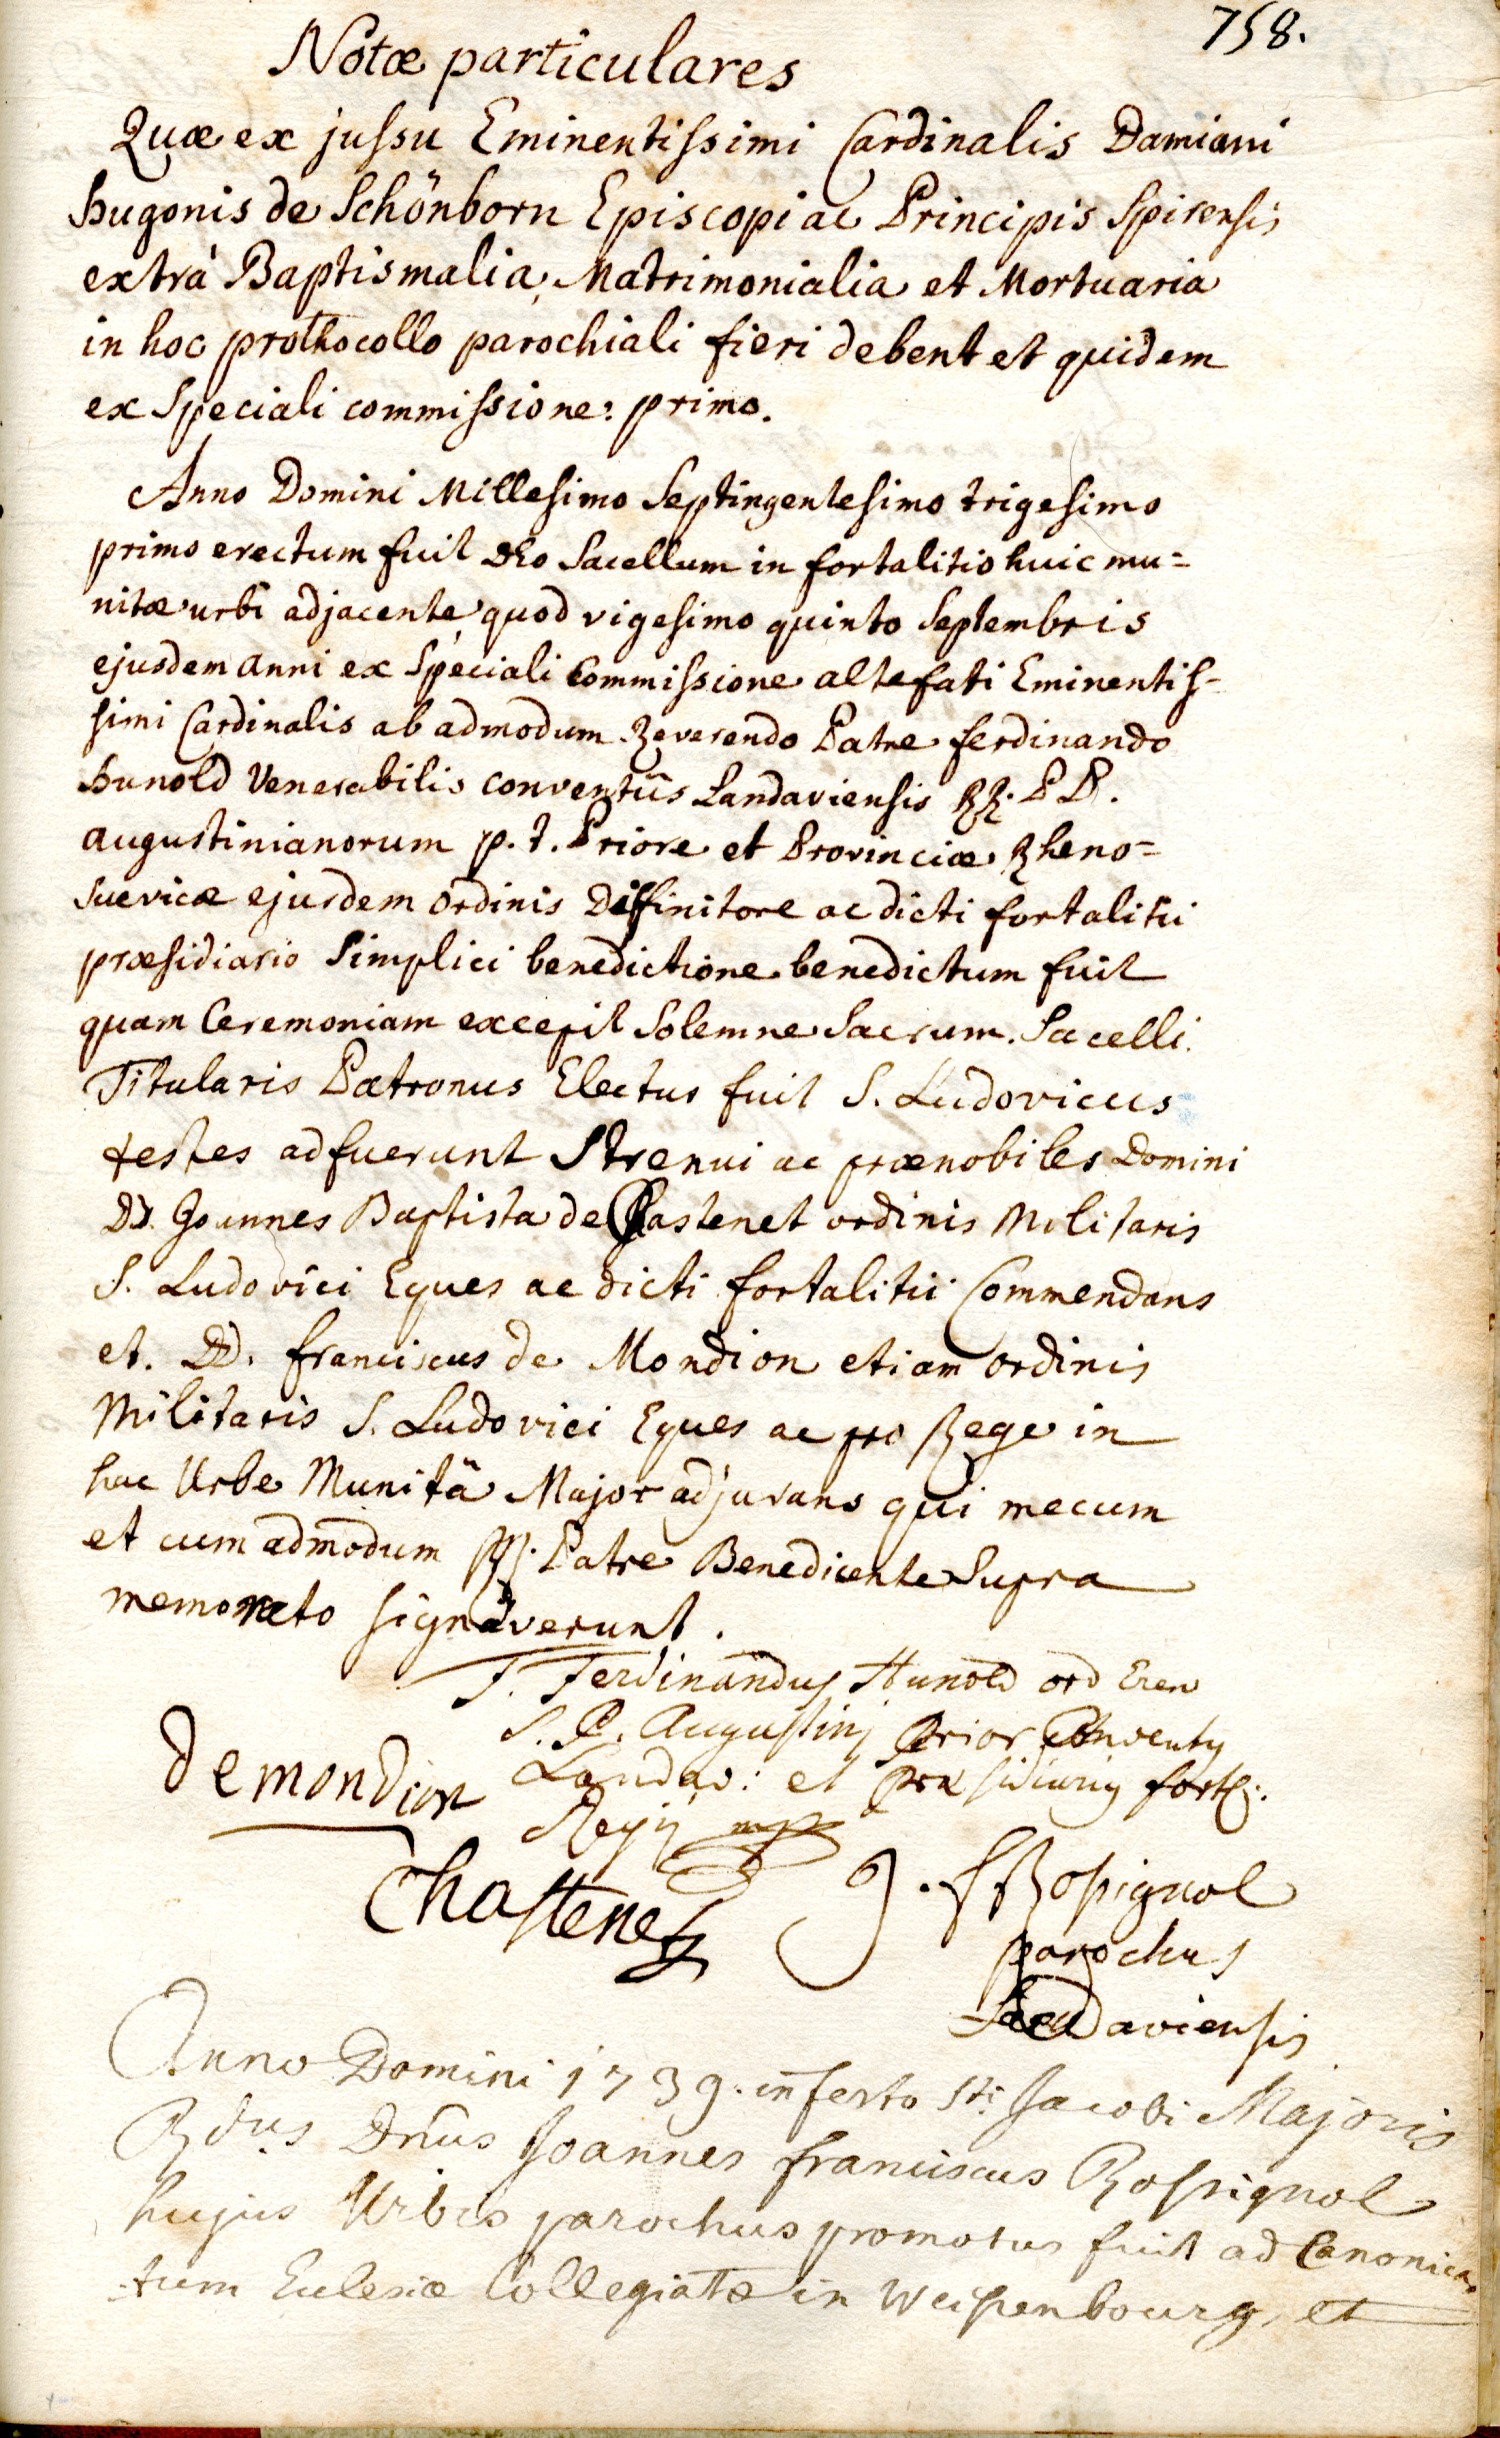 758.
Notæ particulares
Quæ ex jussu Eminentissimi Cardinalis Damiani
Hugonis de Schönborn Episcopi ac Principis Spirensis
extrà Baptismalia, Matrimonialia et Mortuaria
in hoc prothocollo parochiali fieri debent et quidem
ex Speciali commissione: primo.
Anno Domini Millesimo Septingentesimo trigesimo
primo erectum fuit Deo Sacellum in fortalitio huic mu=
nitæ urbi adjacente, quod vigesimo quinto Septembris
ejusdem anni ex Speciali Commissione altefati Eminentis-
simi Cardinalis ab admodum Reverendo Patre ferdinando
Hunold Venerabilis conventûs Landaviensis RR. PP.
augustinianorum p. t. Priore et Provinciæ Rheno=
suevicæ ejusdem ordinis Diffinitore ac dicti fortalitii
præsidiario Simplici benedictione benedictum fuit
quam Ceremoniam excepit Solemne Sacrum. Sacelli
Titularis Patronus Electus fuit S. Ludovicus
testes adfuerunt Strenui ac prænobiles Domini
DD. Joannes Baptista de Chastenet ordinis Militaris
S. Ludovici Eques ac dicti fortalitii Commendans
et. DD. franciscus de Mondion etiam ordinis
Militaris S. Ludovici Eques ac pro Rege in
hac Urbe Munitâ Major adjuvans qui mecum
et cum admodum R. Patre Benedicente Supra
memorato signâverunt.
F. Ferdinandus Hunold ord Erem
S. P. Augustini Prior Conventus
Landav: et præsidiarius fort:
Regii mp
de mondion
Chastenet
J. f Rossignol
parochus
Landaviensis
Anno Domini 1739. in festo Sti Jacobi Majoris
Rdus Dnus Joannes franciscus Rossignol
hujus Urbis parochus promotus fuit ad Canonica-
tum Ecclesiæ Collegiatæ in Weissenbourg, et